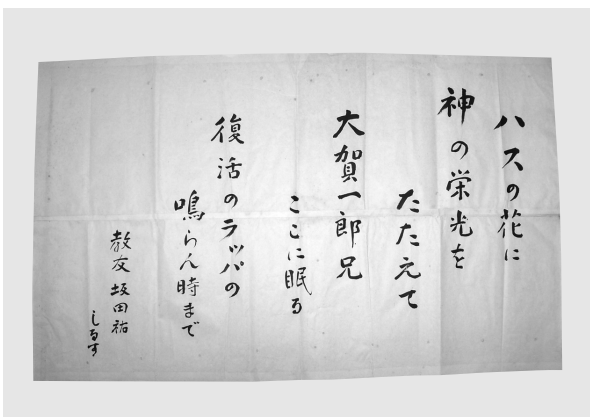 ハスの花に
神の栄光を
たたえて
大賀一郎兄
ここに眠る
復活のラッパの
鳴らん時まで
教友 坂田祐
しるす